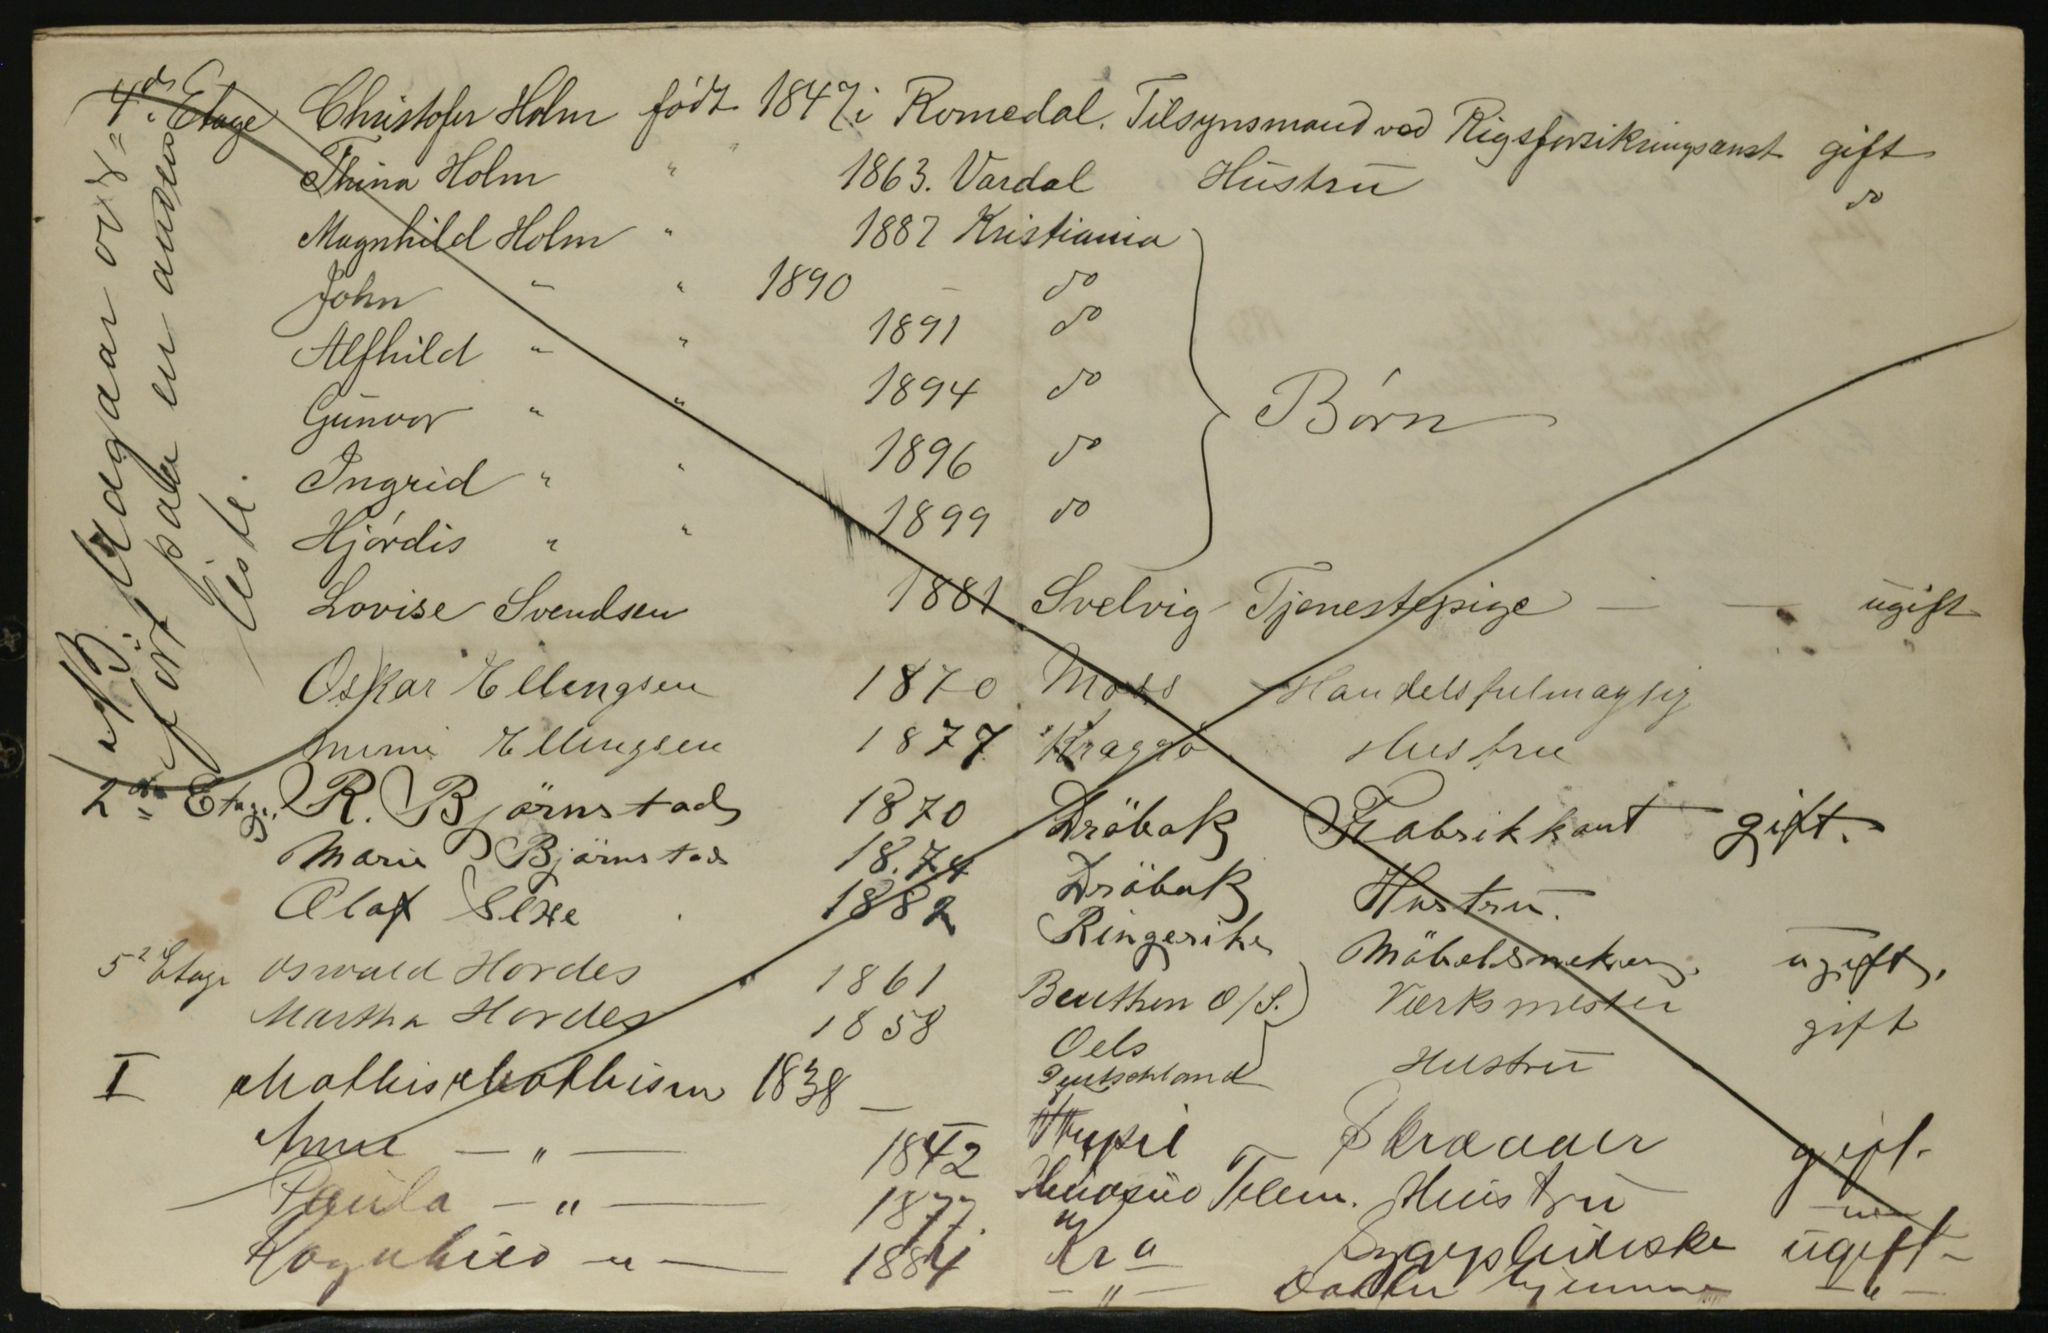 4de Etage Christofer Holm født 1847 i Romedal. Tilsynsmand ved Rigsforsikringsanst gift
Thina Holm " " 1863. Vardal Hustru do
Magnhild Holm " 1887 Kristiania
John " " 1890 — do
Alfhild " " 1891 do
Gunvor " " 1894 do
Ingrid " " 1896 do
Hjørdis " " 1899 do
Børn
Lovise Svendsen 1881 Svelvig Tjenestepige — — ugift
Oskar Ellingsen 1870 Moss Handelsfulmægtig
Mimi Ellingsen 1877 Kragerø Hustru
2den Etage. R. Bjørnstad 1870 Dröbak Fabrikkant gift.
Marie Bjørnstad 1874 Dröbak Hustru.
Olaf 1882 Ringerike Möbelsnekker. ugift.
5te Etage Oswald Hordes 1861 Beuthen O/S. Værksmester gift
Martha Hordes 1858 Oels Deutschland Hustru
I Mathis Mathisen 1838 — Skrædder gift.
Anna — " — 1842 Telem. Hustru — " —
Paula — " — 1877. Kra ugift —
Ragnhild — " — 1884 — " — hjemme — " —
NB. Fradgaar
ført paa en anden
liste.